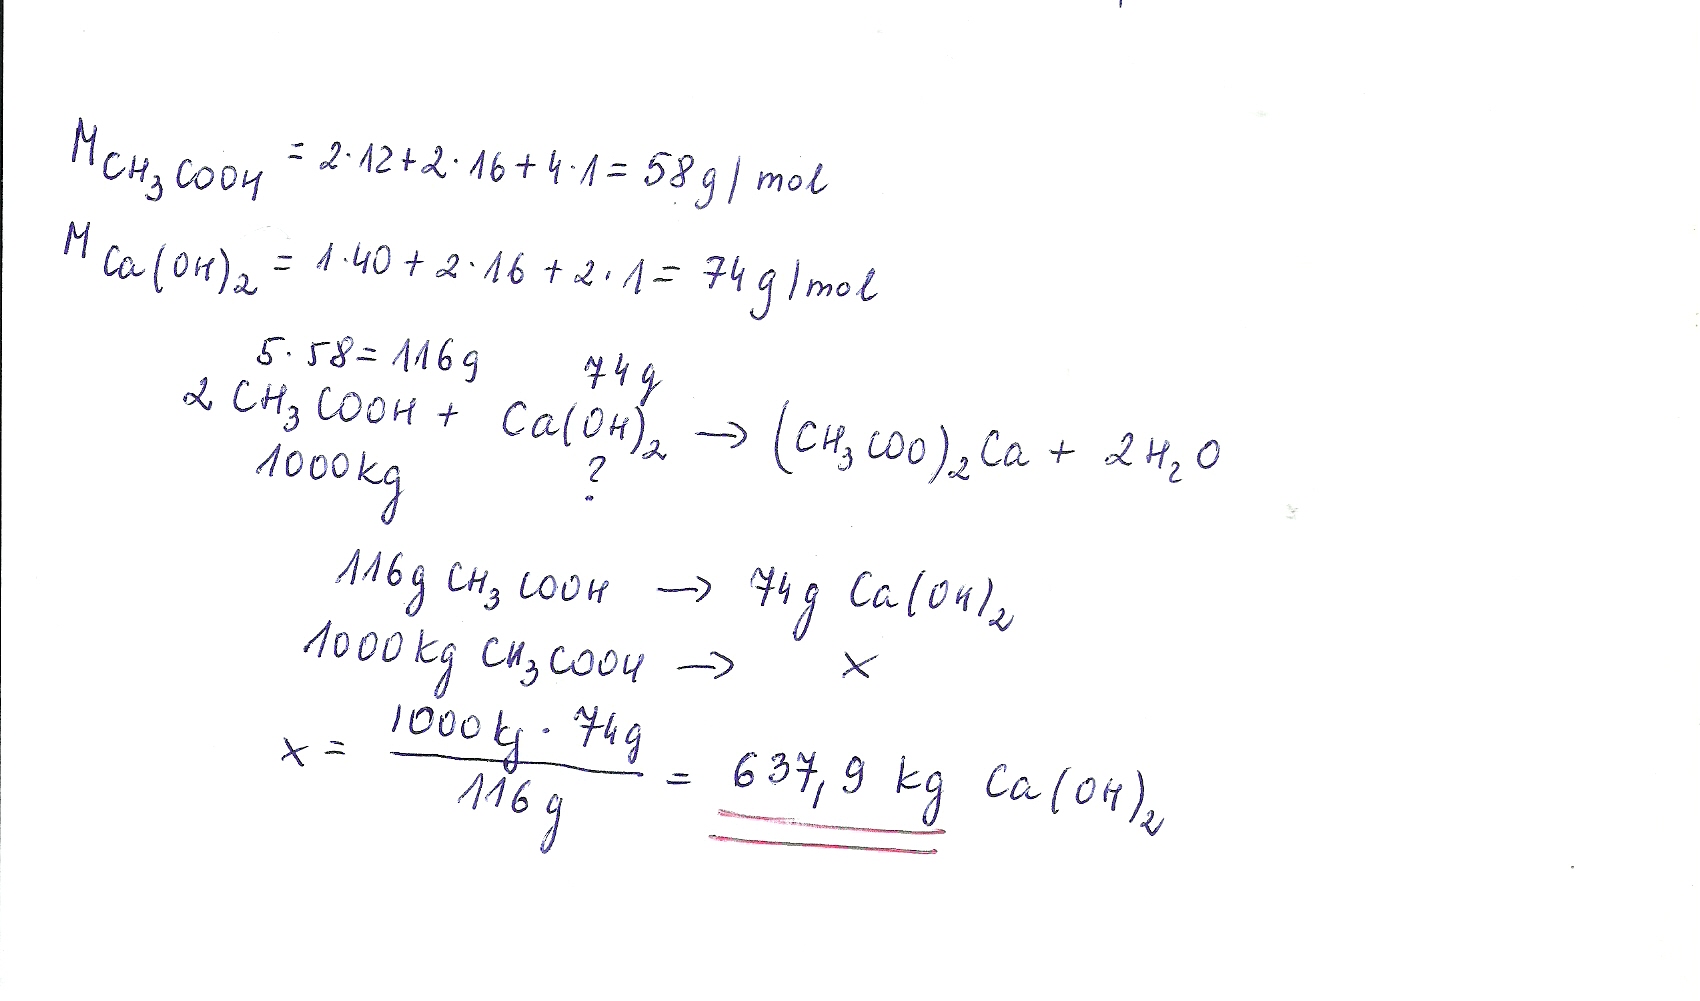 M CH₃COOH = 2·12+2·16+4·1= 58g/mol
M Ca(OH)₂ = 1·40+2·16+2·1= 74g/mol
5·58=116g 74g
2 CH₃COOH + Ca(OH)₂ → (CH₃COO)₂Ca + 2H₂O
1000kg ?
116g CH₃COOH → 74g Ca(OH)₂
1000kg CH₃COOH → x
x = 1000kg · 74g / 116g = 637,9 kg Ca(OH)₂